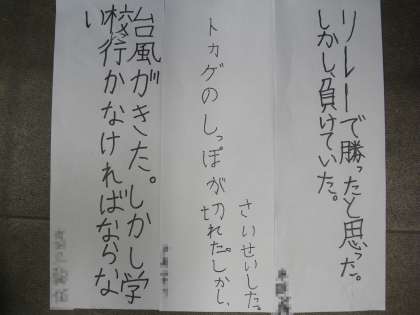 リレーで勝ったと思った。
しかし、負けていた。
トカゲのしっぽが切れた。しかし、
さいせいした。
台風がきた。しかし学
校に行かなければならな
い